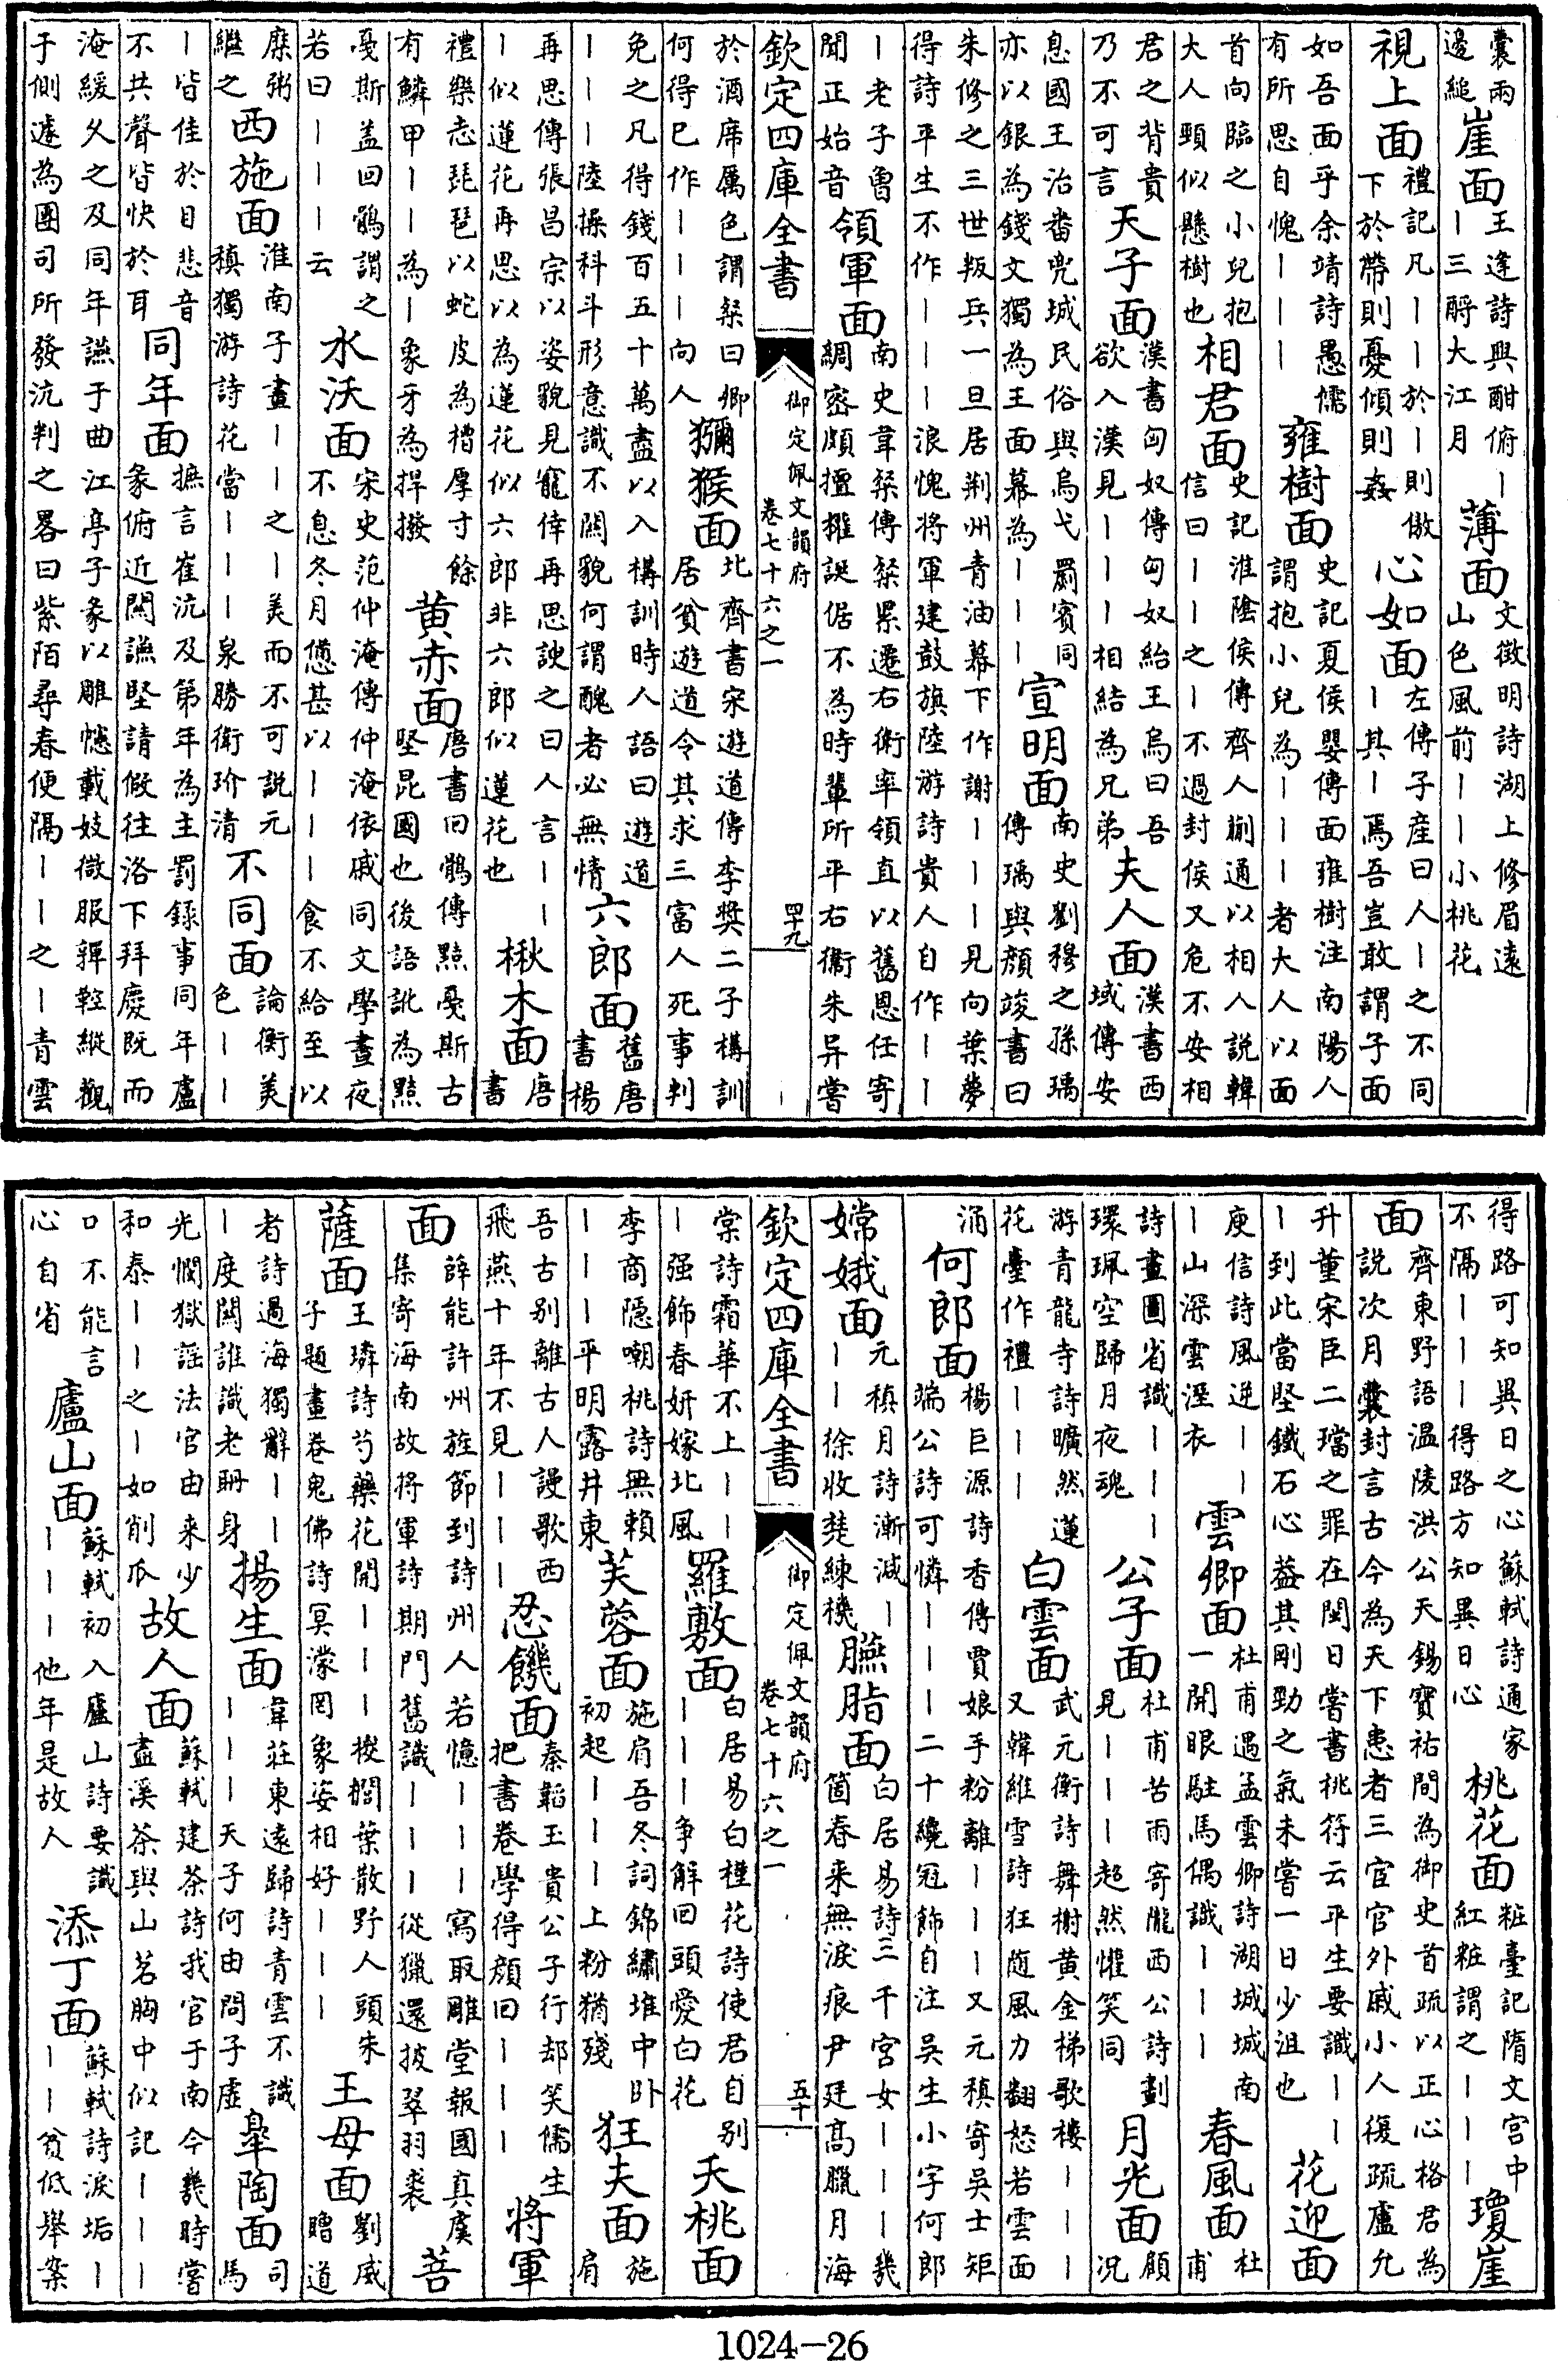 囊兩邊縋 崖面 王逢詩興酣俯丨丨三酹大江月 薄面 文徵明詩湖上修眉遠山色風前丨丨小桃花
視上面 禮記凡丨丨於丨則傲下於帶則憂傾則姦 心如面 左傳子産曰人丨之不同丨其丨焉吾豈敢謂子面
如吾面乎余靖詩愚儒有所思自愧丨丨丨 雍樹面 史記夏侯嬰傳面雍樹注南陽人謂抱小兒為丨丨丨者大人以面
首向臨之小兒抱大人頸似懸樹也 相君面 史記淮陰侯傳齊人蒯通以相人説韓信曰丨丨之丨不過封侯又危不安相
君之背貴乃不可言 天子面 漢書匈奴傳匈奴紿王烏曰吾欲入漢見丨丨丨相結為兄弟 夫人面 漢書西域傳安
息國王治番兜城民俗與烏弋罽賓同亦以銀為錢文獨為王面幕為丨丨丨 宣明面 南史劉穆之孫瑀傳瑀與顔竣書曰
朱修之三世叛兵一旦居荆州青油幕下作謝丨丨丨見向葉夢得詩平生不作丨丨丨浪愧將軍建鼓旗陸游詩貴人自作丨丨
丨老子曾聞正始音 領軍面 南史韋粲傳粲累遷右衛率領直以舊恩任寄綢密頗擅權誕倨不為時輩所平右衛朱异嘗
欽定四庫全書 御定佩文韻府 卷七十六之一 四十九
於酒席厲色謂粲曰卿何得已作丨丨丨向人 獼猴面 北齊書宋遊道傳李奬二子構訓居貧遊道令其求三富人死事判
免之凡得錢百五十萬盡以入構訓時人語曰遊道丨丨丨陸操科斗形意識不關貌何謂醜者必無情 六郎面 舊唐書楊
再思傳張昌宗以姿貌見寵倖再思諛之曰人言丨丨丨似蓮花再思以為蓮花似六郎非六郎似蓮花也 楸木面 唐書
禮樂志琵琶以蛇皮為槽厚寸餘有鱗甲丨丨為丨象牙為捍撥 黄赤面 唐書回鶻傳黠戛斯古堅昆國也後語訛為黠
戛斯盖回鶻謂之若曰丨丨丨云 水沃面 宋史范仲淹傳仲淹依戚同文學晝夜不息冬月憊甚以丨丨丨食不給至以
糜粥繼之 西施面 淮南子畫丨丨之丨美而不可説元稹獨游詩花當丨丨丨泉勝衛玠清 不同面 論衡美色丨丨
丨皆佳於目悲音不共聲皆快於耳 同年面 摭言崔沆及第年為主罰録事同年盧彖俯近關讌堅請假往洛下拜慶既而
淹緩久之及同年讌于曲江亭子彖以雕幰載妓微服嚲鞚縱觀于側遽為團司所發沆判之畧曰紫陌尋春便隔丨丨之丨青雲
得路可知異日之心蘇軾詩通家不隔丨丨丨得路方知異日心 桃花面 粧臺記隋文宫中紅粧謂之丨丨丨 瓊崖
面 齊東野語温陵洪公天錫寶祐間為御史首疏以正心格君為説次月囊封言古今為天下患者三宦官外戚小人復疏盧允
升董宋臣二璫之罪在閩日嘗書桃符云平生要識丨丨丨到此當堅鐵石心葢其剛勁之氣未嘗一日少沮也 花迎面
庾信詩風逆丨丨丨山深雲溼衣 雲卿面 杜甫遇孟雲卿詩湖城城南一開眼駐馬偶識丨丨丨 春風面 杜甫
詩畫圖省識丨丨丨環珮空歸月夜魂 公子面 杜甫苦雨寄隴西公詩劃見丨丨丨超然懽笑同 月光面 顧况
游青龍寺詩曠然蓮花臺作禮丨丨丨 白雲面 武元衡詩舞榭黄金梯歌樓丨丨丨又韓維雪詩狂隨風力翻怒若雲面
涌 何郎面 楊巨源詩香傳賈娘手粉離丨丨丨又元稹寄吳士矩端公詩可憐丨丨丨二十纔冠飾自注吳生小字何郎
嫦娥面 元稹月詩漸減丨丨丨徐收楚練機 臙脂面 白居易詩三千宫女丨丨丨幾箇春来無淚痕尹廷高臘月海
棠詩霜華不上丨丨丨强飾春妍嫁北風 羅敷面 白居易白槿花詩使君自别丨丨丨争解回頭愛白花 夭桃面
李商隱嘲桃詩無賴丨丨丨平明露井東 芙蓉面 施肩吾冬詞錦繡堆中卧初起丨丨丨上粉猶殘 狂夫面 施肩
吾古别離古人謾歌西飛燕十年不見丨丨丨 忍饑面 秦韜玉貴公子行却笑儒生把書卷學得顔回丨丨丨 將軍
面 薛能許州旌節到詩州人若憶丨丨丨寫取雕堂報國真虞集寄海南故將軍詩期門舊識丨丨丨從獵還披翠羽裘 菩
薩面 王璘詩芍藥花開丨丨丨椶櫚葉散野人頭朱子題畫卷鬼佛詩冥濛罔象姿相好丨丨丨 王母面 劉威贈道
者詩過海獨辭丨丨丨度關誰識老聃身 揚生面 韋莊東遠歸詩青雲不識丨丨丨天子何由問子虚 臯陶面 司馬
光憫獄謡法官由来少和泰丨丨之丨如削瓜 故人面 蘇軾建茶詩我官于南今幾時嘗盡溪茶與山茗胸中似記丨丨丨
口不能言心自省 廬山面 蘇軾初入廬山詩要識丨丨丨他年是故人 添丁面 蘇軾詩淚垢丨丨丨貧低舉案
欽定四庫全書 御定佩文韻府 卷七十六之一 五十
1024-26